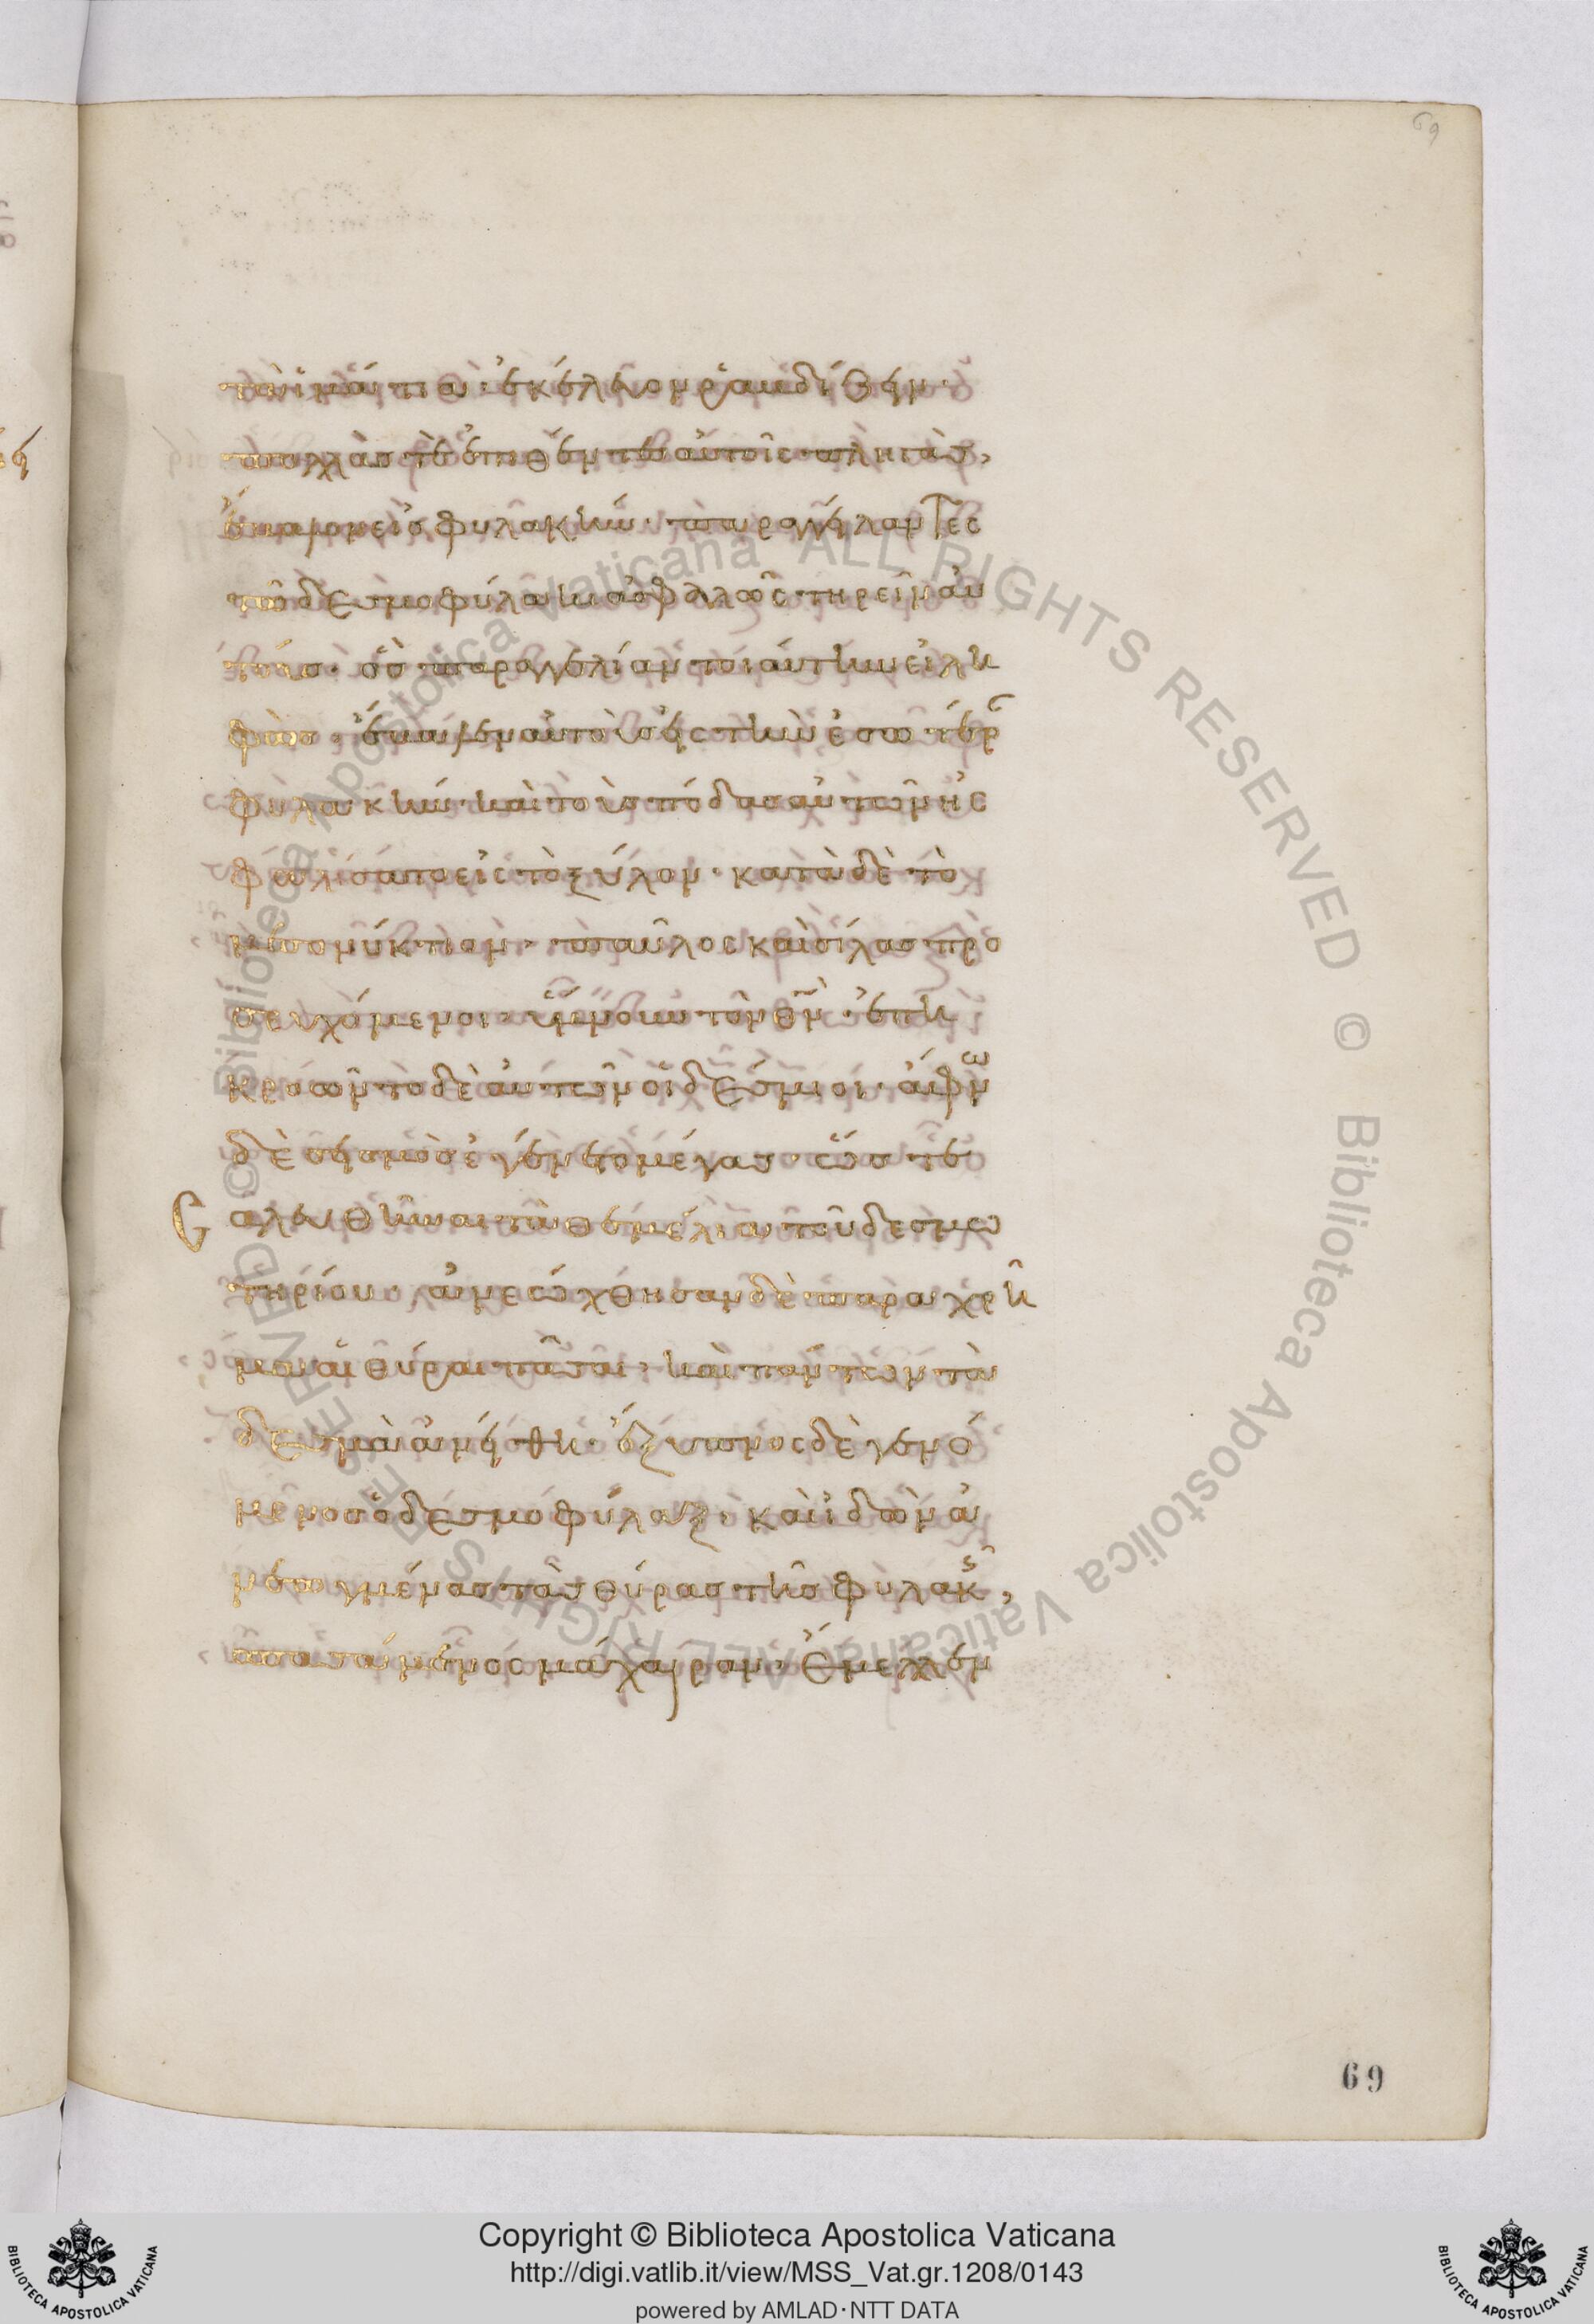 69
τὰ ἱμάτια· ἐκέλευον ῥαβδίζειν·
πολλὰς τὲ ἐπιθέντες αὐτοῖς πληγὰς,
ἔβαλον εἰς φυλακὴν· παραγγείλαντες
τῶ δεσμοφύλακι ἀσφαλῶς τηρεῖν αὐ
τούς· ὃς παραγγελίαν τοιαύτην εἰλη
φὼς· ἔβαλεν αὐτοὺς εἰς τὴν ἐσωτέρ
φυλακὴν· καὶ τοὺς πόδας αὐτῶν ἠσ
φαλίσατο εἰς τὸ ξύλον· κατὰ δὲ τὸ
μεσονύκτιον· παῦλος καὶ σίλας προ
σευχόμενοι· ὕμνουν τὸν θν· ἐπη
κροῶντο δὲ αὐτῶν οἱ δέσμιοι· ἄφνω
δὲ σεισμὸς ἐγένετο μέγας· ὥστε
σαλευθῆναι τὰ θεμέλια τοῦ δεσμω
τηρίου· ἀνεώχθησαν δὲ παραχρῆ
μα αἱ θύραι πᾶσαι· καὶ πάντων τὰ
δεσμὰ ἀνέθη· ἔξυπνος δὲ γενό
μενος ὁ δεσμοφύλαξ· καὶ ἰδὼν ἀ
νεωγμένας τὰς θύρας τῆς φυλακῆς,
σπασάμενος μάχαιραν· ἔμελλεν
69
© Biblioteca Apostolica Vaticana ALL RIGHTS RESERVED © Biblioteca Apostolica Vaticana ALL RIGHTS RESERVED
Copyright © Biblioteca Apostolica Vaticana
http://digi.vatlib.it/view/MSS_Vat.gr.1208/0143
powered by AMLAD·NTT DATA
BIBLIOTECA APOSTOLICA VATICANA
BIBLIOTECA APOSTOLICA VATICANA